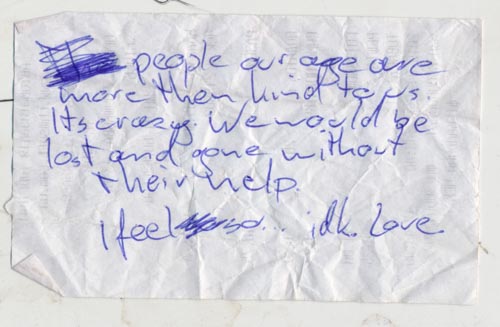 people our age are
more then kind to us.
Its crazy. We would be
lost and gone without
their help.
I feel so... idk. Love.